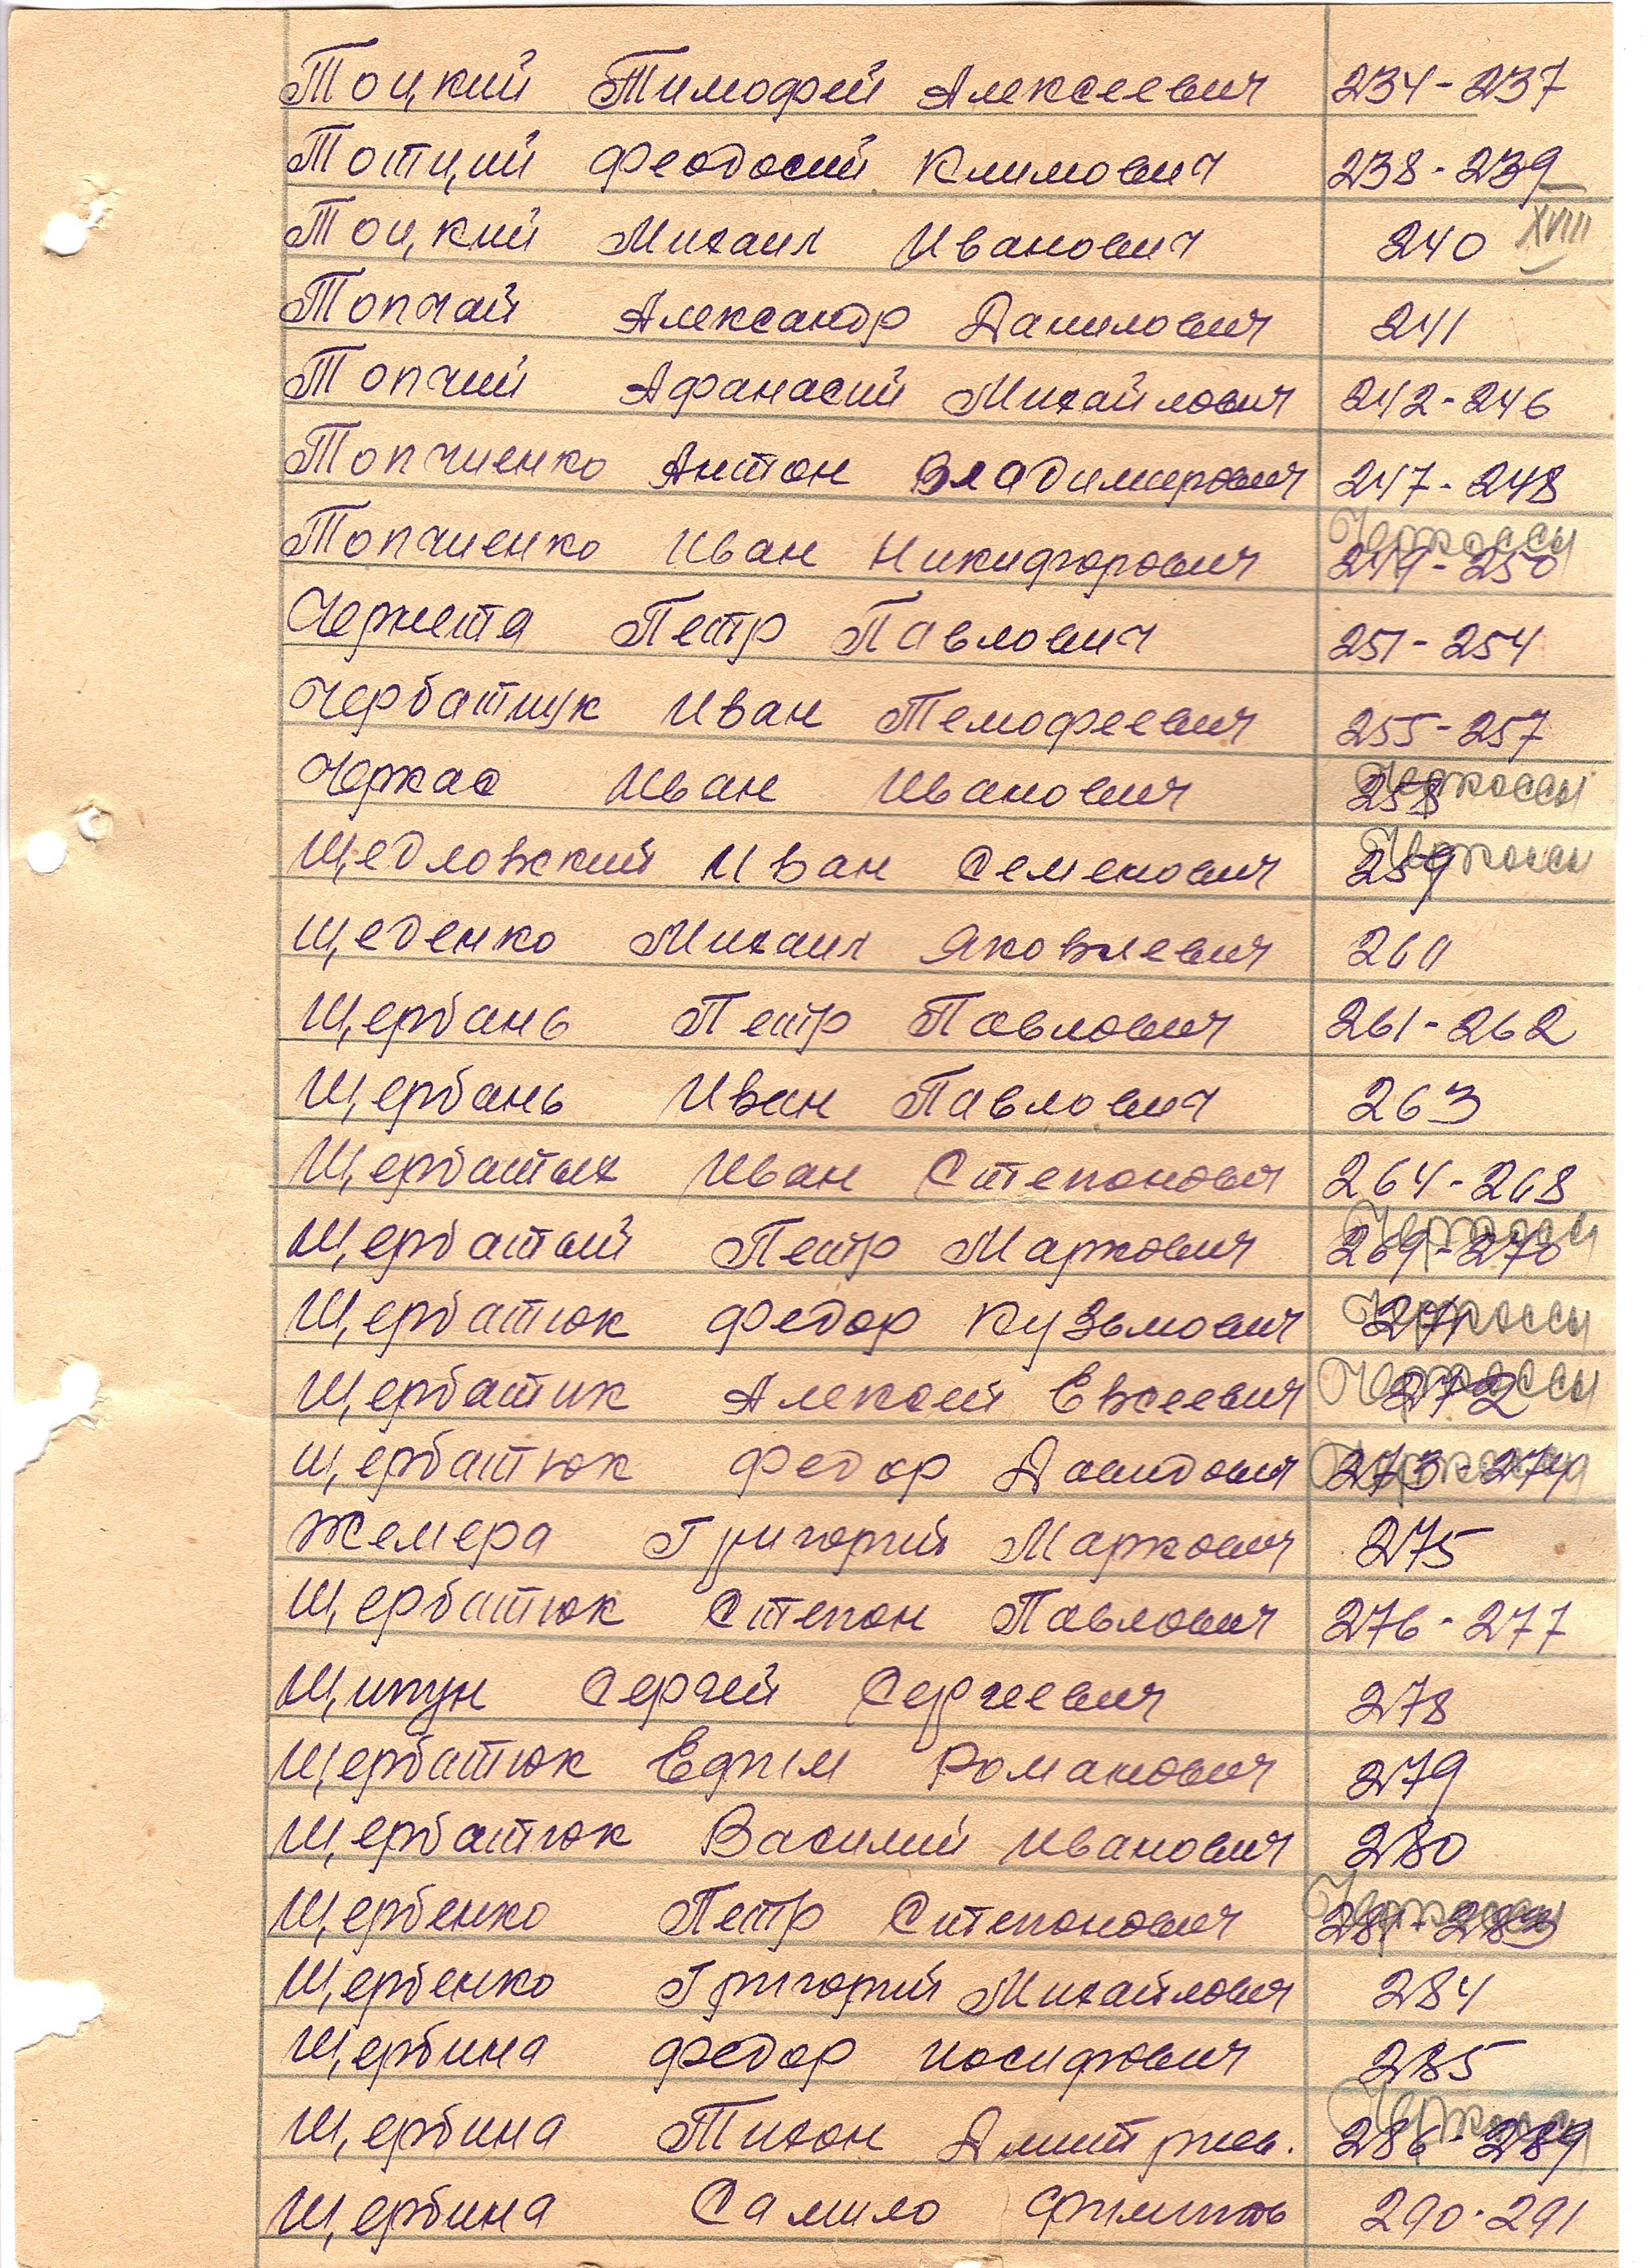 Тоцкий Тимофей Алексеевич 234-237
Тотций Феодосий Климович 238-239
Тоцкий Михаил Иванович 240 XVIII
Топчай Александр Данилович 241
Топчий Афанасий Михайлович 242-246
Топчиенко Антон Владимирович 247-248
Топчиенко Иван Никифорович 249-250 Черкассы
Чернета Петр Павлович 251-254
Чербатщук Иван Темофеевич 255-257
Черкас Иван Иванович 258 Черкассы
Щедловский Иван Семенович 259 Черкассы
Щеденко Михаил Яковлевич 260
Щербань Петр Павлович 261-262
Щербань Иван Павлович 263
Щербатых Иван Степанович 264-268
Щербатый Петр Маркович 269-270 Черкассы
Щербатюк Федор Кузьмович 271 Черкассы
Щербатик Алексей Евсеевич 272 Черкассы
Щербатюк Федор Давидович 273-274 Черкассы
Жемера Григорий Маркович 275
Щербатюк Степан Павлович 276-277
Щипун Сергей Сергеевич 278
Щербатюк Ефим Романович 279
Щербатюк Василий Иванович 280
Щербенко Петр Степанович 281-283 Черкассы
Щербенко Григорий Михайлович 284
Щербина Федор Иосифович 285
Щербина Тихон Дмитриев. 286-289 Черкассы
Щербина Самило Филипов 290-291